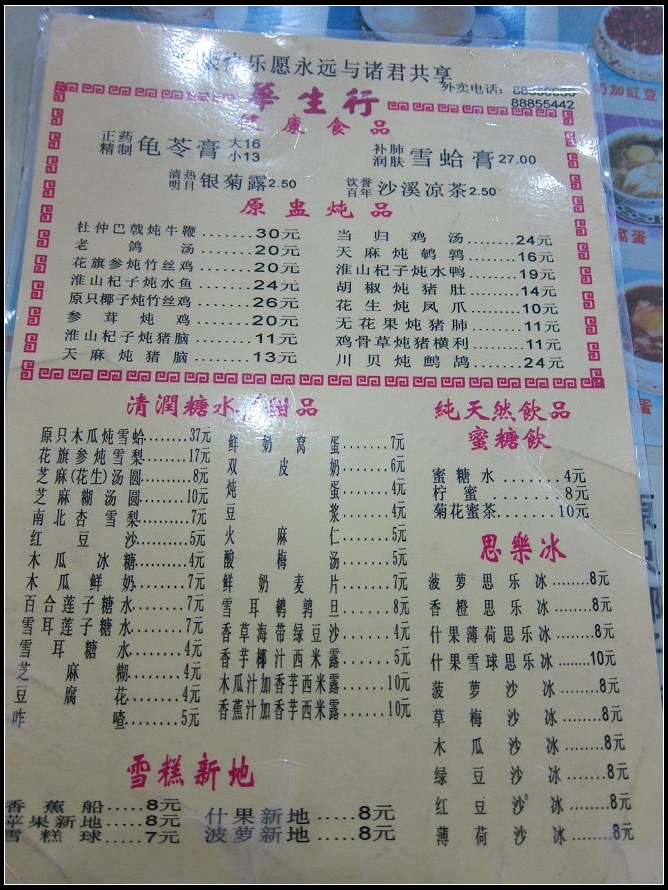 乐愿永远与诸君共享
外卖电话:
華生行
88855442
健康食品
正药精制 龟苓膏 大16 小13
补肺润肤 雪蛤膏 27.00
清热明目 银菊露 2.50
饮誉百年 沙溪凉茶 2.50
原盅炖品
杜仲巴戟炖牛鞭.......30元
老鸽汤.......20元
花旗参炖竹丝鸡.......20元
淮山杞子炖水鱼.......24元
原只椰子炖竹丝鸡.......26元
参茸炖鸡.......20元
淮山杞子炖猪脑.......11元
天麻炖猪脑.......13元
当归鸡汤.......24元
天麻炖鹌鹑.......16元
淮山杞子炖水鸭.......19元
胡椒炖猪肚.......14元
花生炖凤爪.......10元
无花果炖猪肺.......11元
鸡骨草炖猪横利.......11元
川贝炖鹧鸪.......24元
清潤糖水 甜品
原只木瓜炖雪蛤........37元
花旗参炖雪梨........17元
芝麻(花生)汤圆........8元
芝麻糊汤圆........10元
南北杏雪梨........7元
红豆沙........5元
木瓜冰糖........4元
木瓜鲜奶........7元
百合莲子糖水........7元
雪耳莲子糖水........7元
雪耳糖水........4元
芝麻糊........4元
豆腐花........4元
咋喳........5元
鲜奶窝蛋........7元
双皮奶........6元
炖蛋........4元
豆浆........4元
火麻仁........5元
酸梅汤........5元
鲜奶麦片........7元
雪耳鹌鹑旦........8元
香草海带绿豆沙........4元
香芋椰汁西米露........5元
木瓜汁加香芋西米露........10元
香蕉汁加香芋西米露........10元
純天然飲品
蜜糖飲
蜜糖水.......4元
柠蜜.......8元
菊花蜜茶.......10元
思樂冰
菠萝思乐冰........8元
香橙思乐冰........8元
什果薄荷思乐冰........8元
什果雪球思乐冰........10元
菠萝沙冰........8元
草梅沙冰........8元
木瓜沙冰........8元
绿豆沙冰........8元
红豆沙冰........8元
薄荷沙冰........8元
雪糕新地
香蕉船.....8元
苹果新地.....8元
雪糕球.....7元
什果新地.....8元
菠萝新地.....8元
加紅豆
窩蛋
蛋